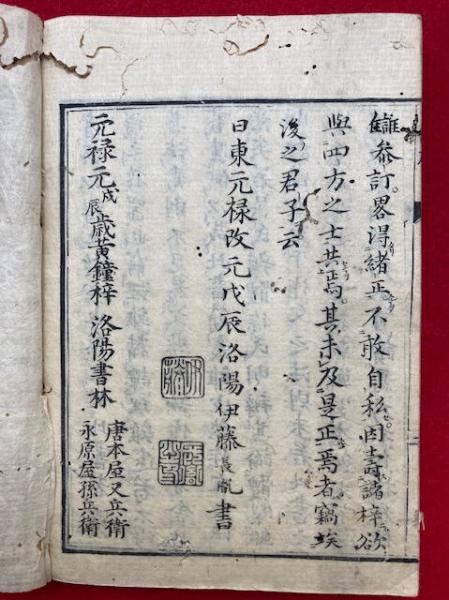 讎參訂畧得緒正不敢自私因壽諸梓欲
與四方之士共焉其未及是正焉者竊埃
後之君子云
日東元禄改元戊辰洛陽伊藤長胤書
元禄元戊辰歳黄鐘梓 洛陽書林
唐本屋又兵衛
永原屋孫兵衛